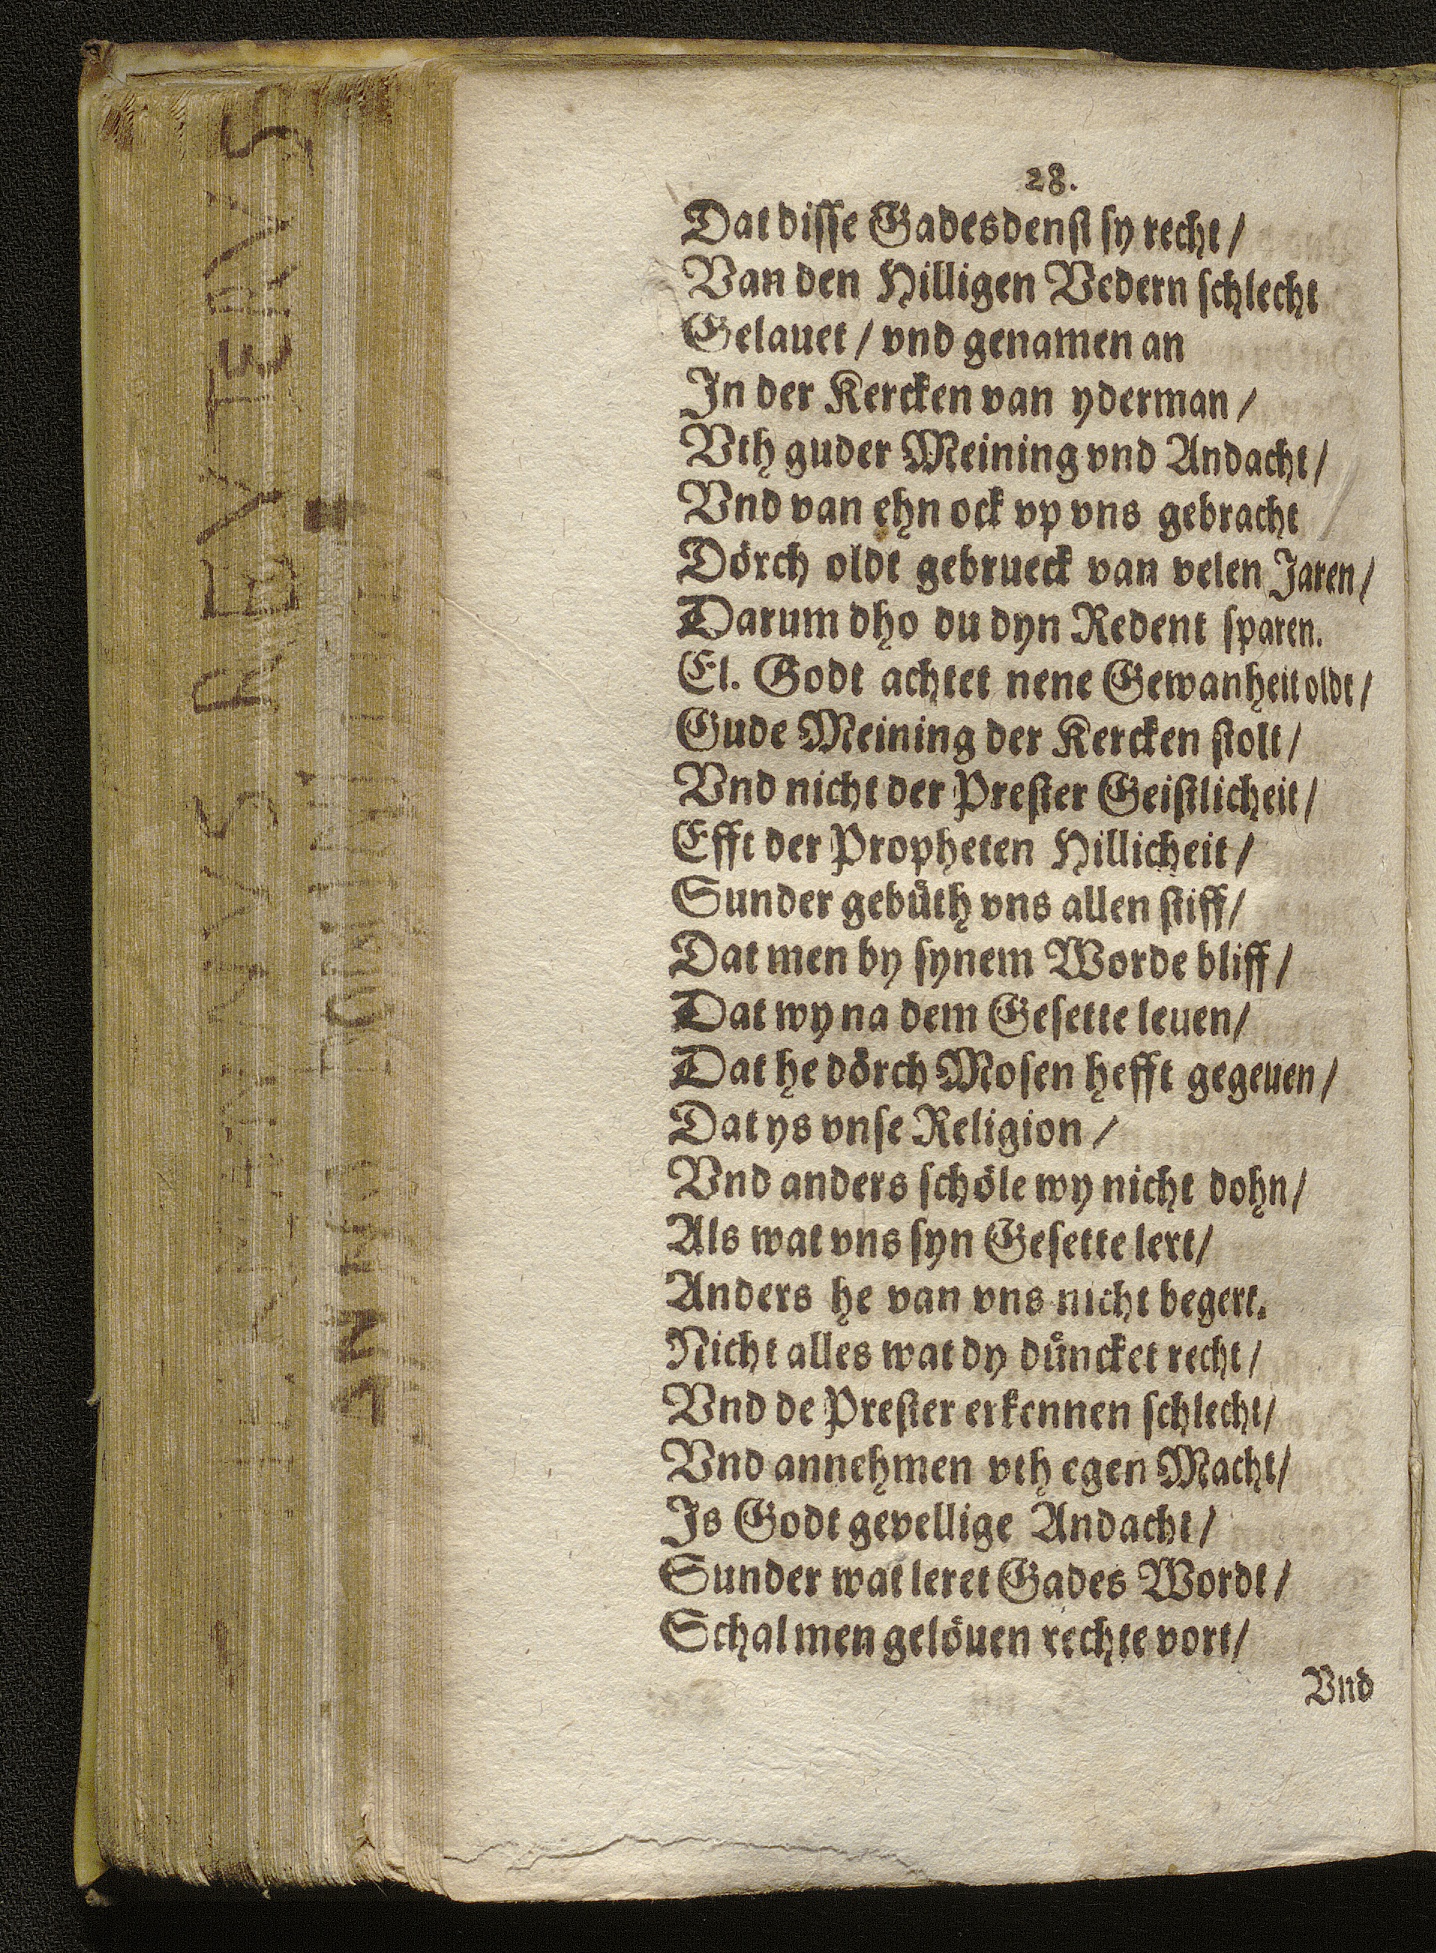 28.
Dat disse Gadesdenst sy recht /
Van den Hilligen Vedern schlecht
Gelauet / vnd genamen an
In der Kercken van yderman /
Vth guder Meining vnd Andacht /
Vnd van ehn ock vp vns gebracht /
Dörch oldt gebrueck van velen Jaren /
Darum dho du dyn Redent sparen.
El. Godt achtet nene Gewanheit oldt /
Gude Meining der Kercken stolt /
Vnd nicht der Prester Geistlicheit /
Efft der Propheten Hillicheit /
Sunder gebüth vns allen stiff /
Dat men by synem Worde bliff /
Dat wy na dem Gesette leuen /
Dat he dörch Mosen hefft gegeuen /
Dat ys vnse Religion /
Vnd anders schöle wy nicht dohn /
Als wat vns syn Gesette lert /
Anders he van vns nicht begert.
Nicht alles wat dy düncket recht /
Vnd de Prester erkennen schlecht /
Vnd annehmen vth egen Macht /
Is Godt gevellige Andacht /
Sunder wat leret Gades Wordt /
Schal men gelöuen rechte vort /
Vnd
REVTERVS
DOMINI